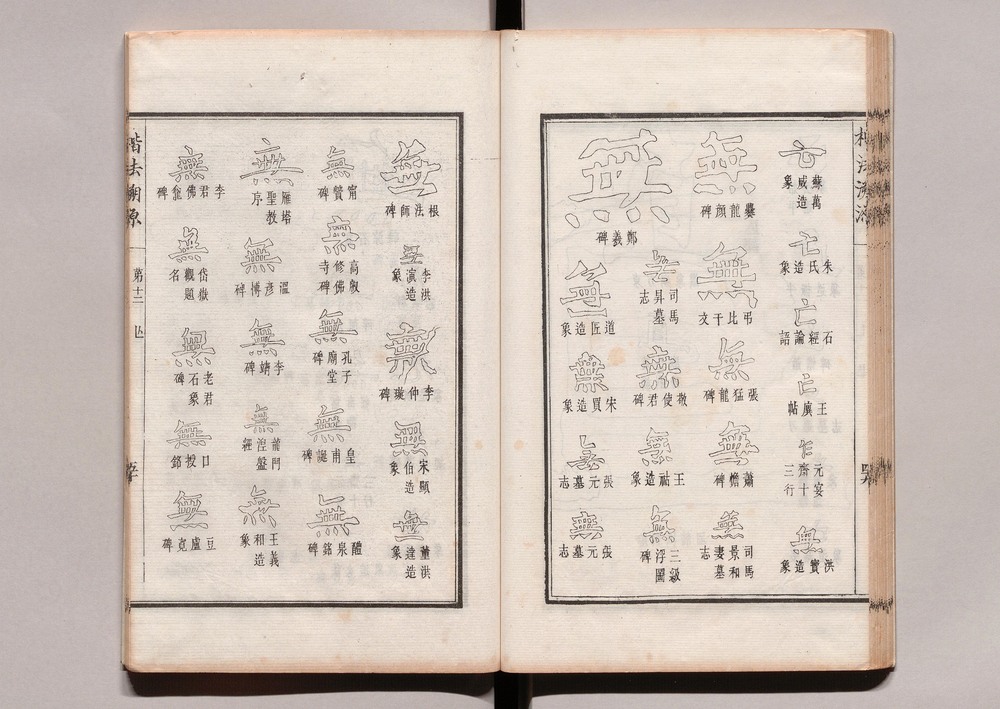 亡
蘇萬威造象
亡
朱氏造象
亡
石經論語
亡
王廙帖
亡
元宴齋十三行
無
洪寶造象
無
爨龍顏碑
無
弔比干文
無
張猛龍碑
無
蕭憺碑
無
司馬景和妻墓志
無
鄭羲碑
無
司馬昇墓志
無
敬使君碑
無
王祜造象
無
三級浮圖碑
無
道匠造象
無
宋買造象
無
張元墓志
無
張元墓志
無
根法師碑
無
李洪演造象
無
李仲璇碑
無
宋顯伯造象
無
董洪達造象
無
甯贊碑
無
高叡修佛寺碑
無
孔子廟堂碑
無
皇甫誕碑
無
醴泉銘碑
無
雁塔聖教序
無
溫彥博碑
無
李靖碑
無
龍門湼盤經
無
王義和造象
無
李君佛龕碑
無
岱嶽觀題名
無
老君石象碑
無
口授銘
無
豆盧寬碑
楷法溯源
第十二